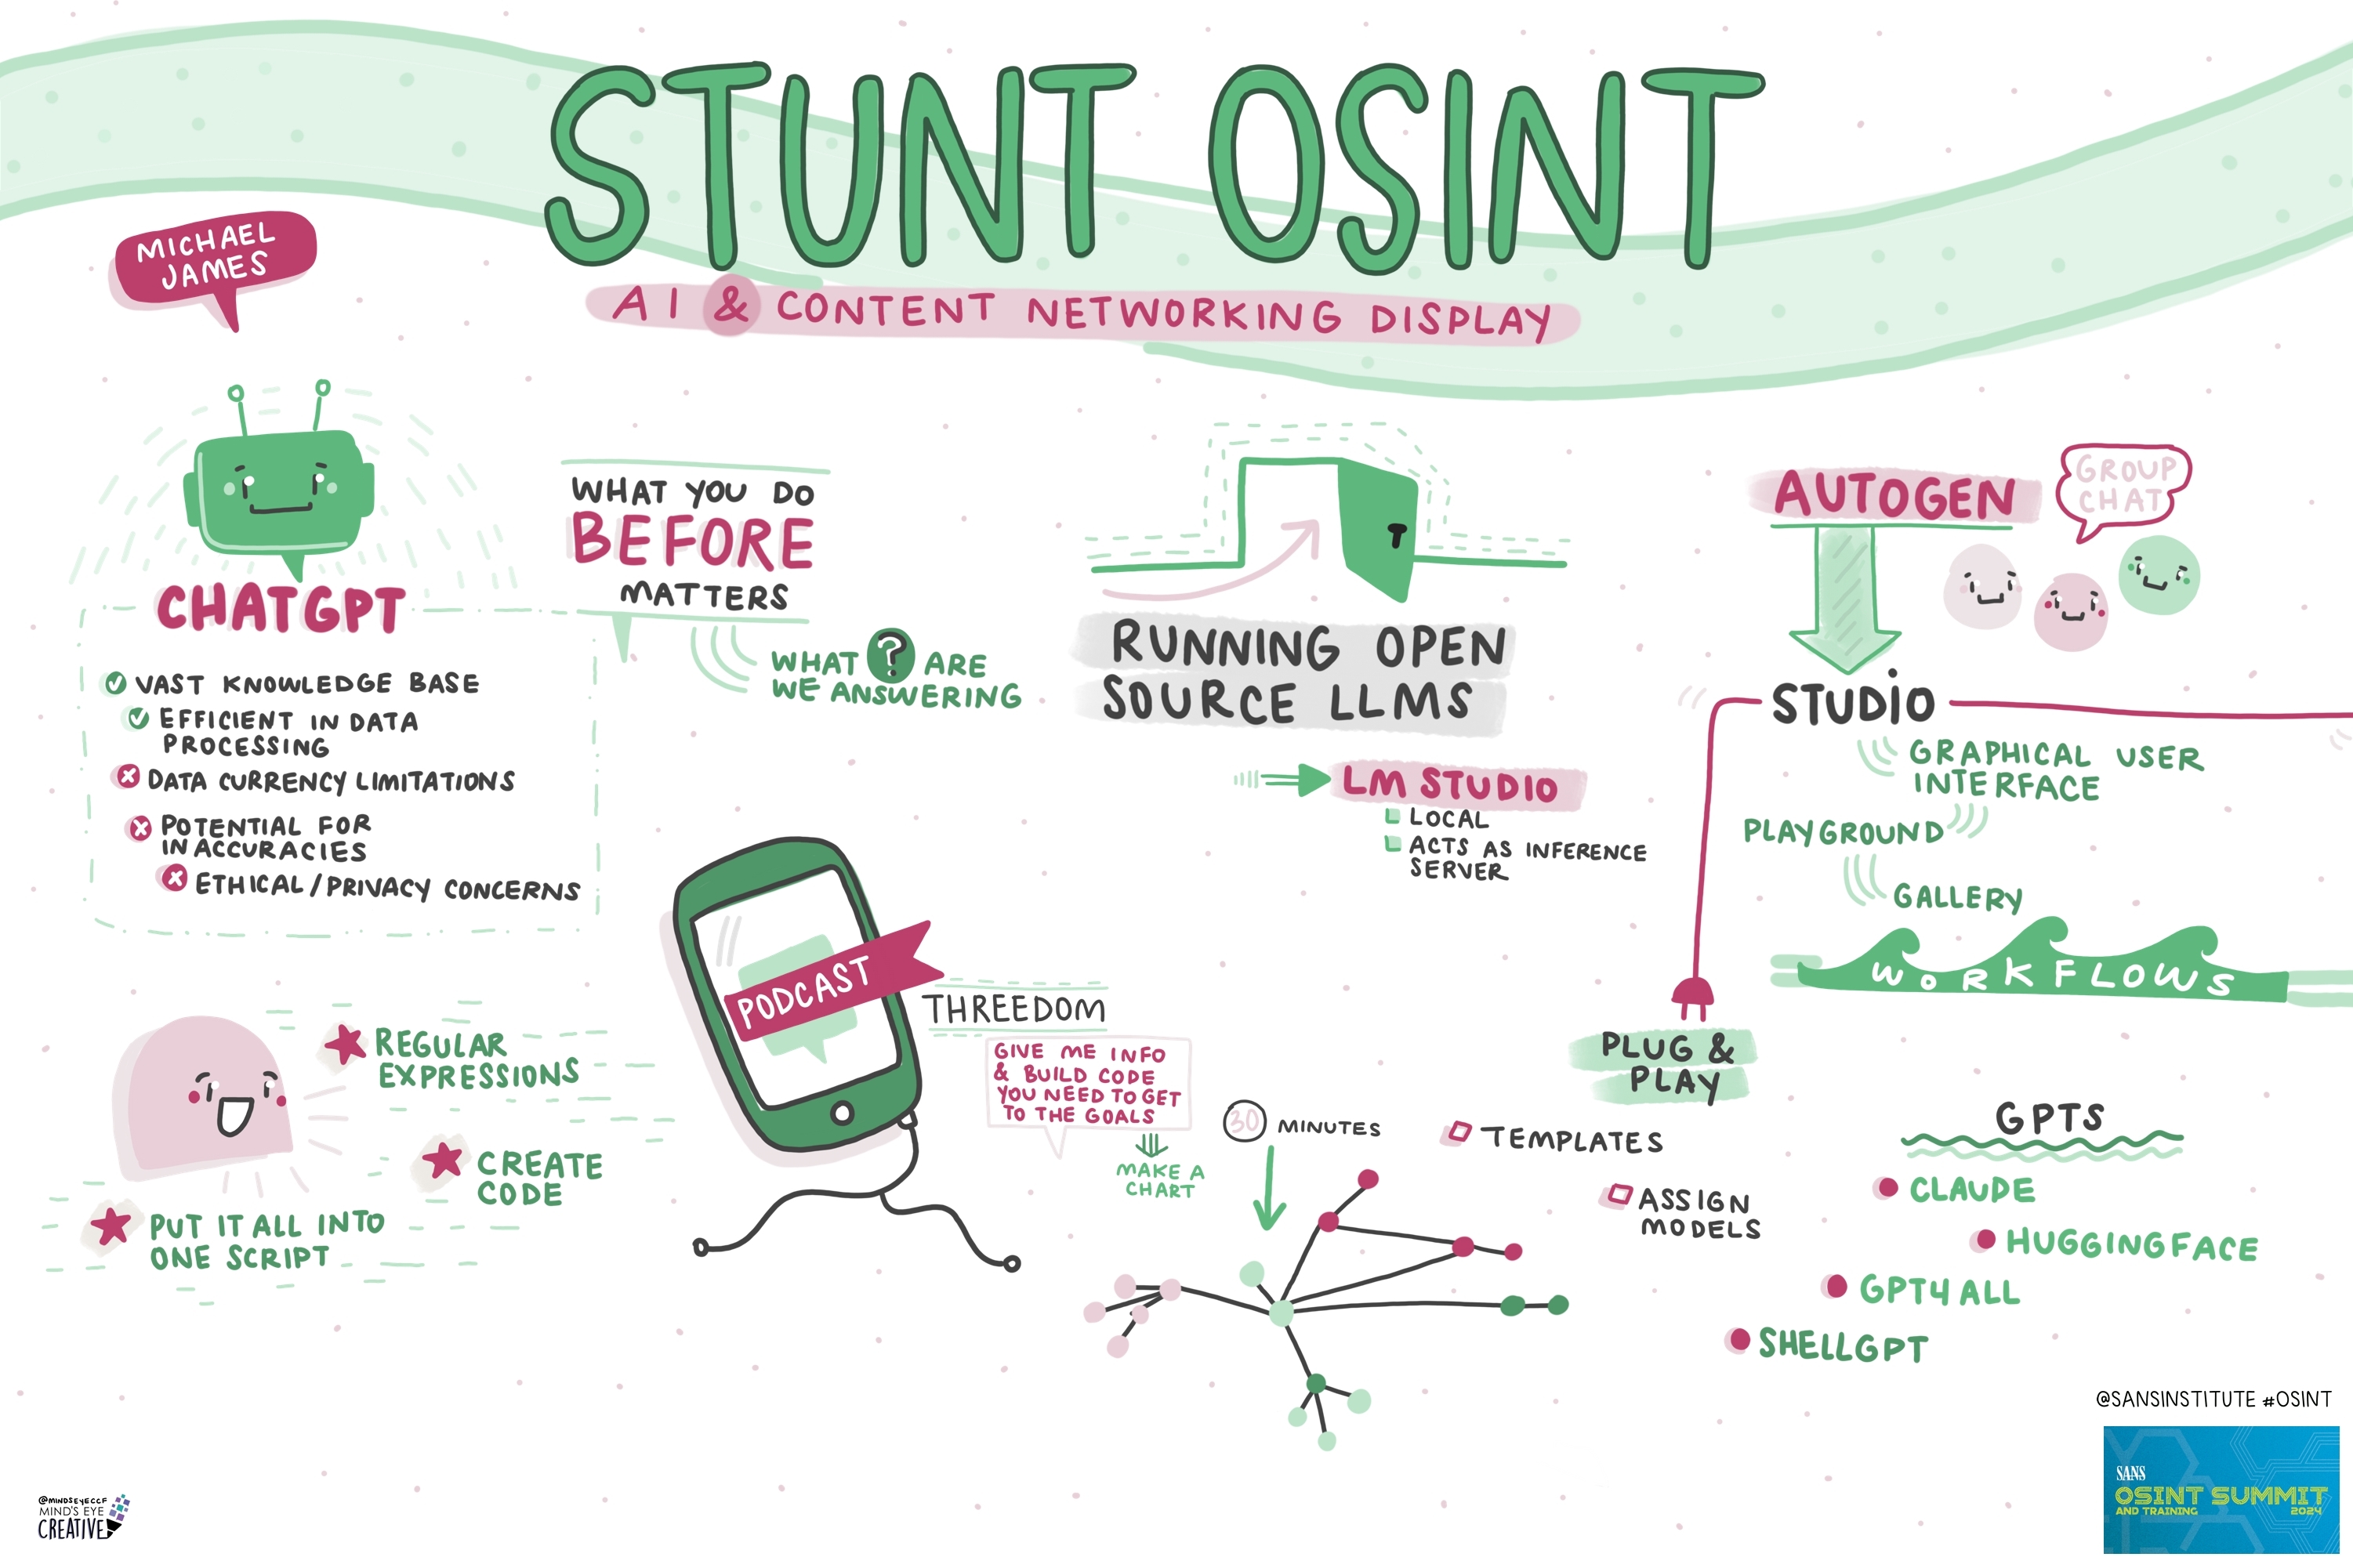 STUNT OSINT
AI & CONTENT NETWORKING DISPLAY
MICHAEL
JAMES
CHATGPT
VAST KNOWLEDGE BASE
EFFICIENT IN DATA
PROCESSING
DATA CURRENCY LIMITATIONS
POTENTIAL FOR
INACCURACIES
ETHICAL/PRIVACY CONCERNS
WHAT YOU DO
BEFORE
MATTERS
WHAT ? ARE
WE ANSWERING
REGULAR
EXPRESSIONS
CREATE
CODE
PUT IT ALL INTO
ONE SCRIPT
PODCAST
THREEDOM
GIVE ME INFO
& BUILD CODE
YOU NEED TO GET
TO THE GOALS
MAKE A
CHART
30 MINUTES
RUNNING OPEN
SOURCE LLMS
LM STUDIO
LOCAL
ACTS AS INFERENCE
SERVER
AUTOGEN
GROUP
CHAT
STUDIO
GRAPHICAL USER
INTERFACE
PLAYGROUND
GALLERY
WORKFLOWS
PLUG &
PLAY
TEMPLATES
ASSIGN
MODELS
GPTS
CLAUDE
HUGGINGFACE
GPT4ALL
SHELLGPT
@SANSINSTITUTE #OSINT
SANS
OSINT SUMMIT
AND TRAINING 2024
@MINDSEYECCF
MIND'S EYE
CREATIVE